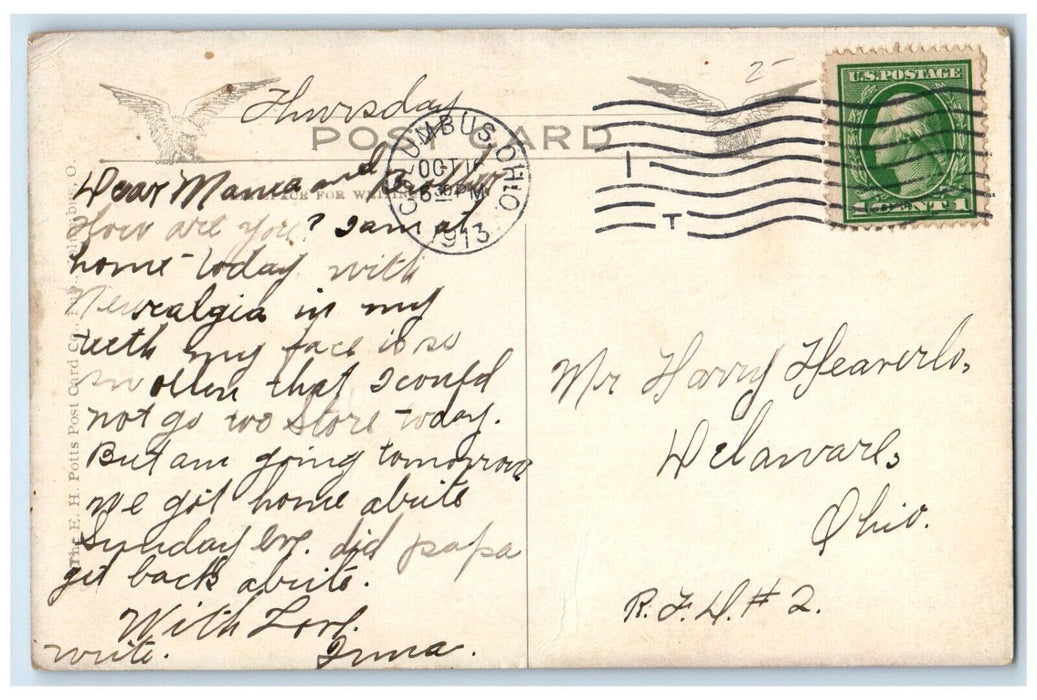 2-
U.S. POSTAGE
Thursday
POST CARD
COLUMBUS, OHIO
OCT 1
630 PM
1913
1 CENT 1
SPACE FOR
Dear Mama and
How are you? I am at
home today with
Neuralgia in my
teeth my face is so
swollen that I could
not go too store today.
But am going tomorrow
we got home abrite
Sunday Eve. did papa
get back abrite.
With Love.
write. Inna.
Mr Harry Heaverlo,
Delaware,
Ohio.
R.F.D. # 2.
The E. H. Potts Post Card Co., O.